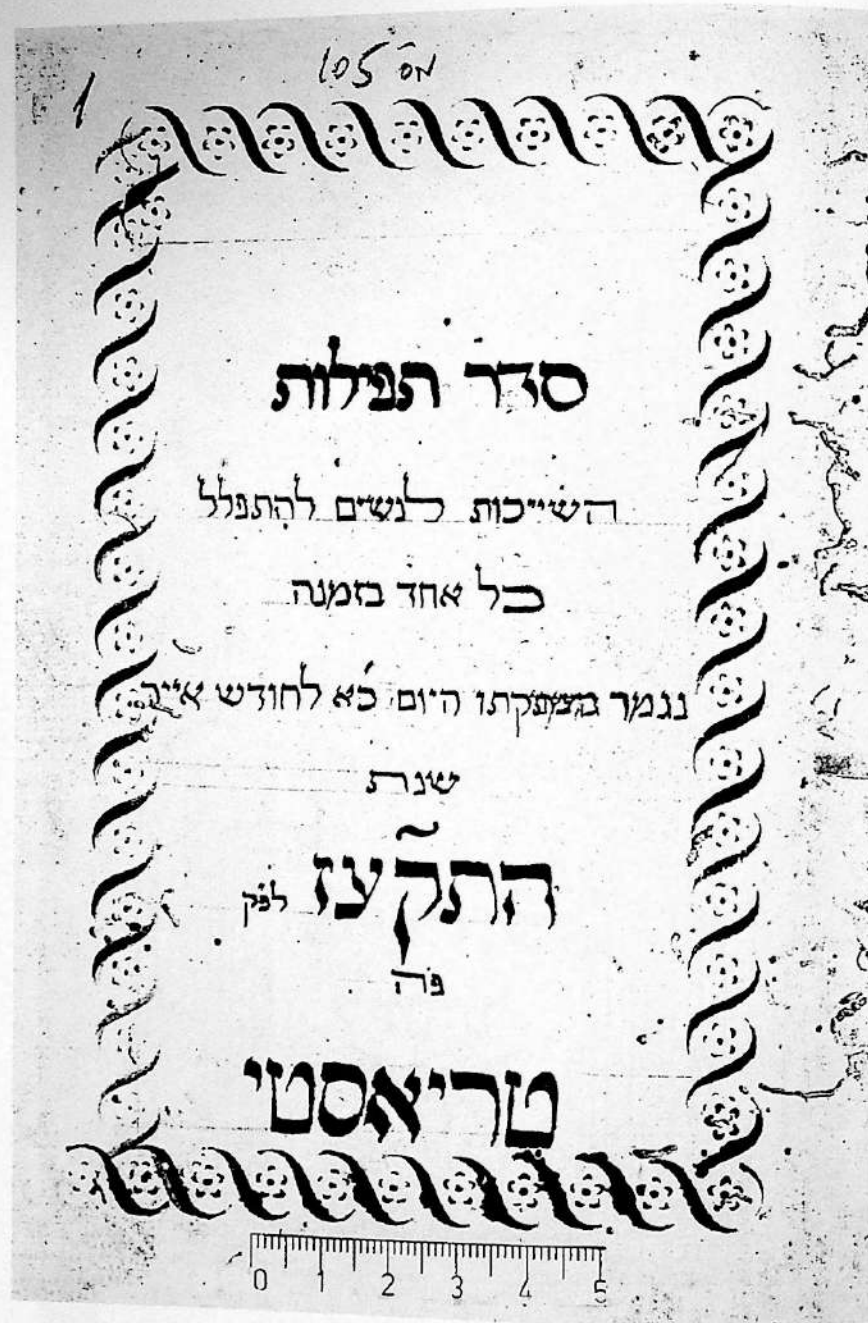 מס 105
1
סדר תפילות
השייכות לנשים להתפלל
כל אחד בזמנה
נגמר היום כ׳א לחודש אייר
שנת
התקעז לפק
פה
טריאסטי
0 1 2 3 4 5